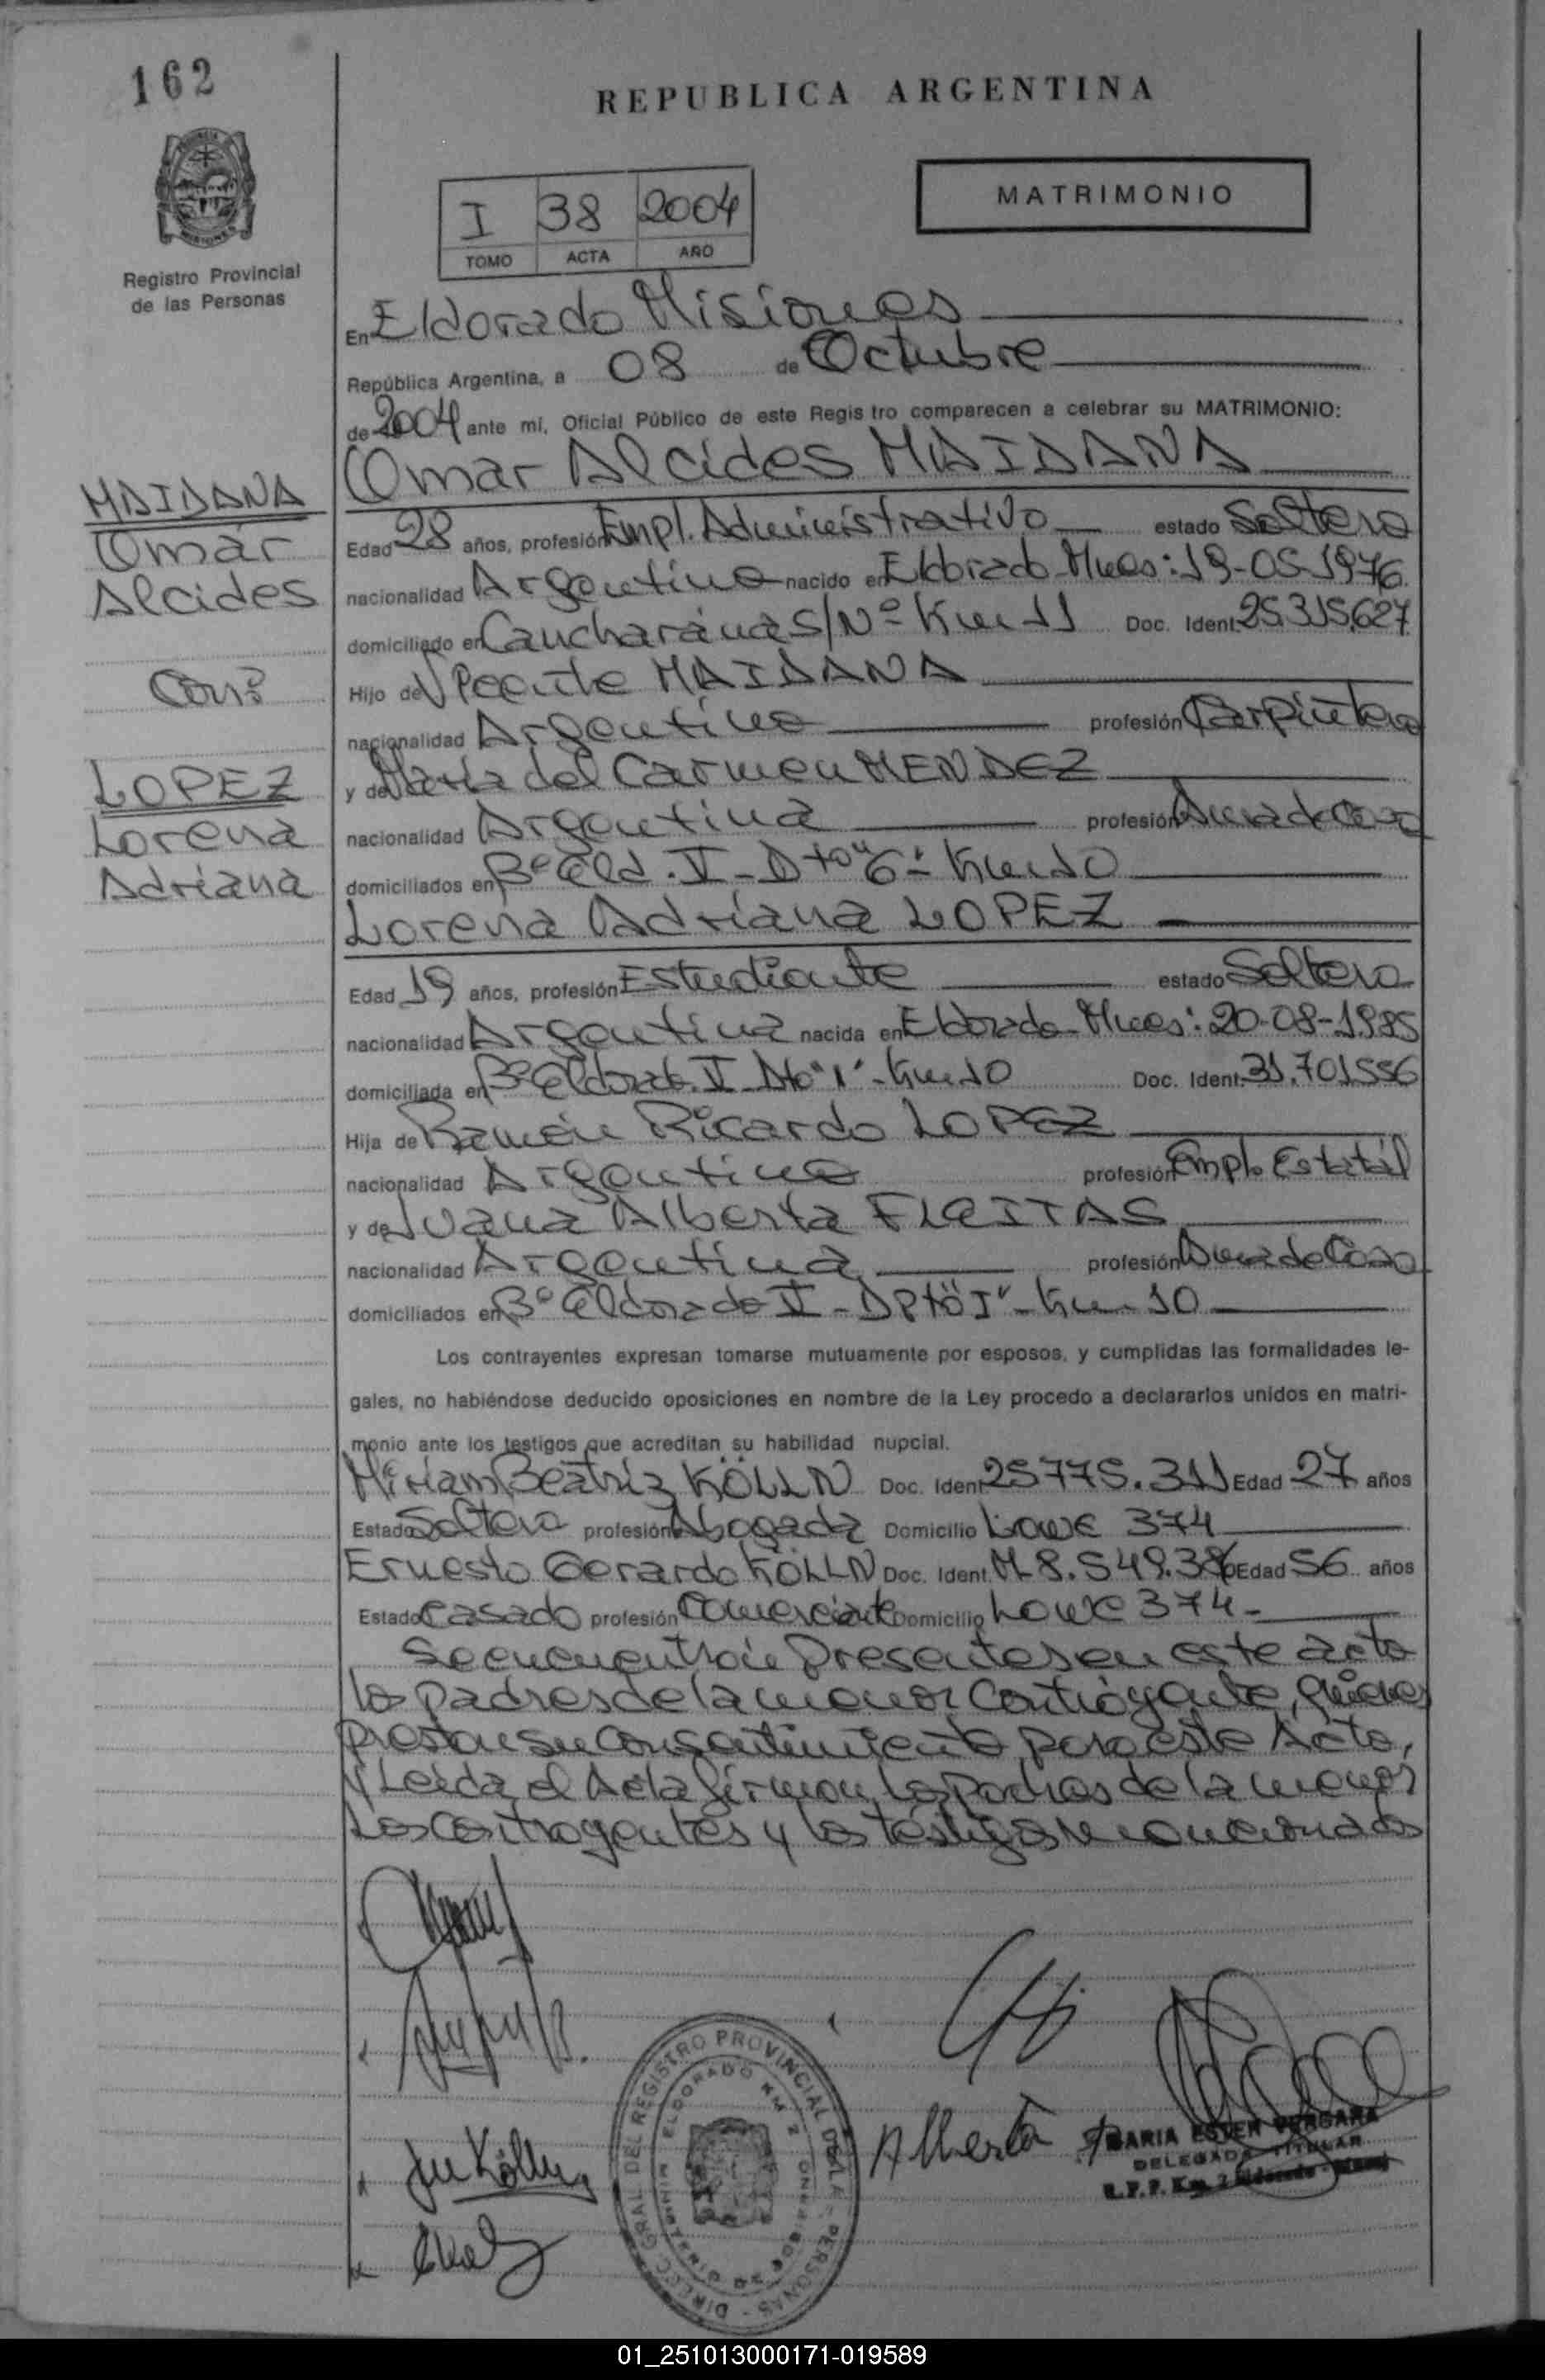 162
REPUBLICA ARGENTINA
MATRIMONIO
I 38 2004
TOMO ACTA AÑO
Registro Provincial
de las Personas
MAIDANA
Omar
Alcides
Con:
LOPEZ
Lorena
Adriana
En Eldorado Misiones
República Argentina, a 08 de Octubre
de 2004 ante mí, Oficial Público de este Regis tro comparecen a celebrar su MATRIMONIO:
Omar Alcides MAIDANA
Edad 28 años, profesión Empl. Administrativo estado Soltero
nacionalidad Argentino nacido en Eldorado Mnes: 19-05-1976
domiciliado en Caucharána S/Nº Km 11 Doc. Ident. 25.315.627
Hijo de Vicente MAIDANA
nacionalidad Argentino profesión Carpintero
y de María del Carmen MENDEZ
nacionalidad Argentina profesión Ama de Casa
domiciliados en Bº Eld. V - Dto "6" - Km 10
Lorena Adriana LOPEZ
Edad 19 años, profesión Estudiante estado Soltera
nacionalidad Argentina nacida en Eldorado - Mnes: 20-08-1985
domiciliada en Bº Eldorado V Dto "I" - Km 10 Doc. Ident. 31.701556
Hija de Ramón Ricardo LOPEZ
nacionalidad Argentino profesión Empl. Estatál
y de Juana Alberta FLEITAS
nacionalidad Argentina profesión Ama de Casa
domiciliados en Bº Eldorado V - Dptö I" - Km 10
Los contrayentes expresan tomarse mutuamente por esposos, y cumplidas las formalidades le-
gales, no habiéndose deducido oposiciones en nombre de la Ley procedo a declararlos unidos en matri-
monio ante los testigos que acreditan su habilidad nupcial.
Miriam Beatriz KÖLLN Doc. Ident. 25775.311 Edad 27 años
Estado Soltera profesión Abogada Domicilio Lowe 374
Ernesto Gerardo KÖLLN Doc. Ident. M 8.549.386 Edad 56 años
Estado Casado profesión Comerciante Domicilio Lowe 374-
Se encuentran presentes en este acto
los padres de la menor Contrayente, quienes
prestan su consentimiento para este Acto,
y Leída el Acta firman los padres de la menor
Los Contrayentes y los testigos mencionados
Alberta
MARIA ESTER VERGARA
DELEGADA TITULAR
R.P.P. Km. 2 Eldorado
DIRECC GRAL DEL REGISTRO PROVINCIAL DE LAS PERSONAS
ELDORADO KM 2
01_251013000171-019589